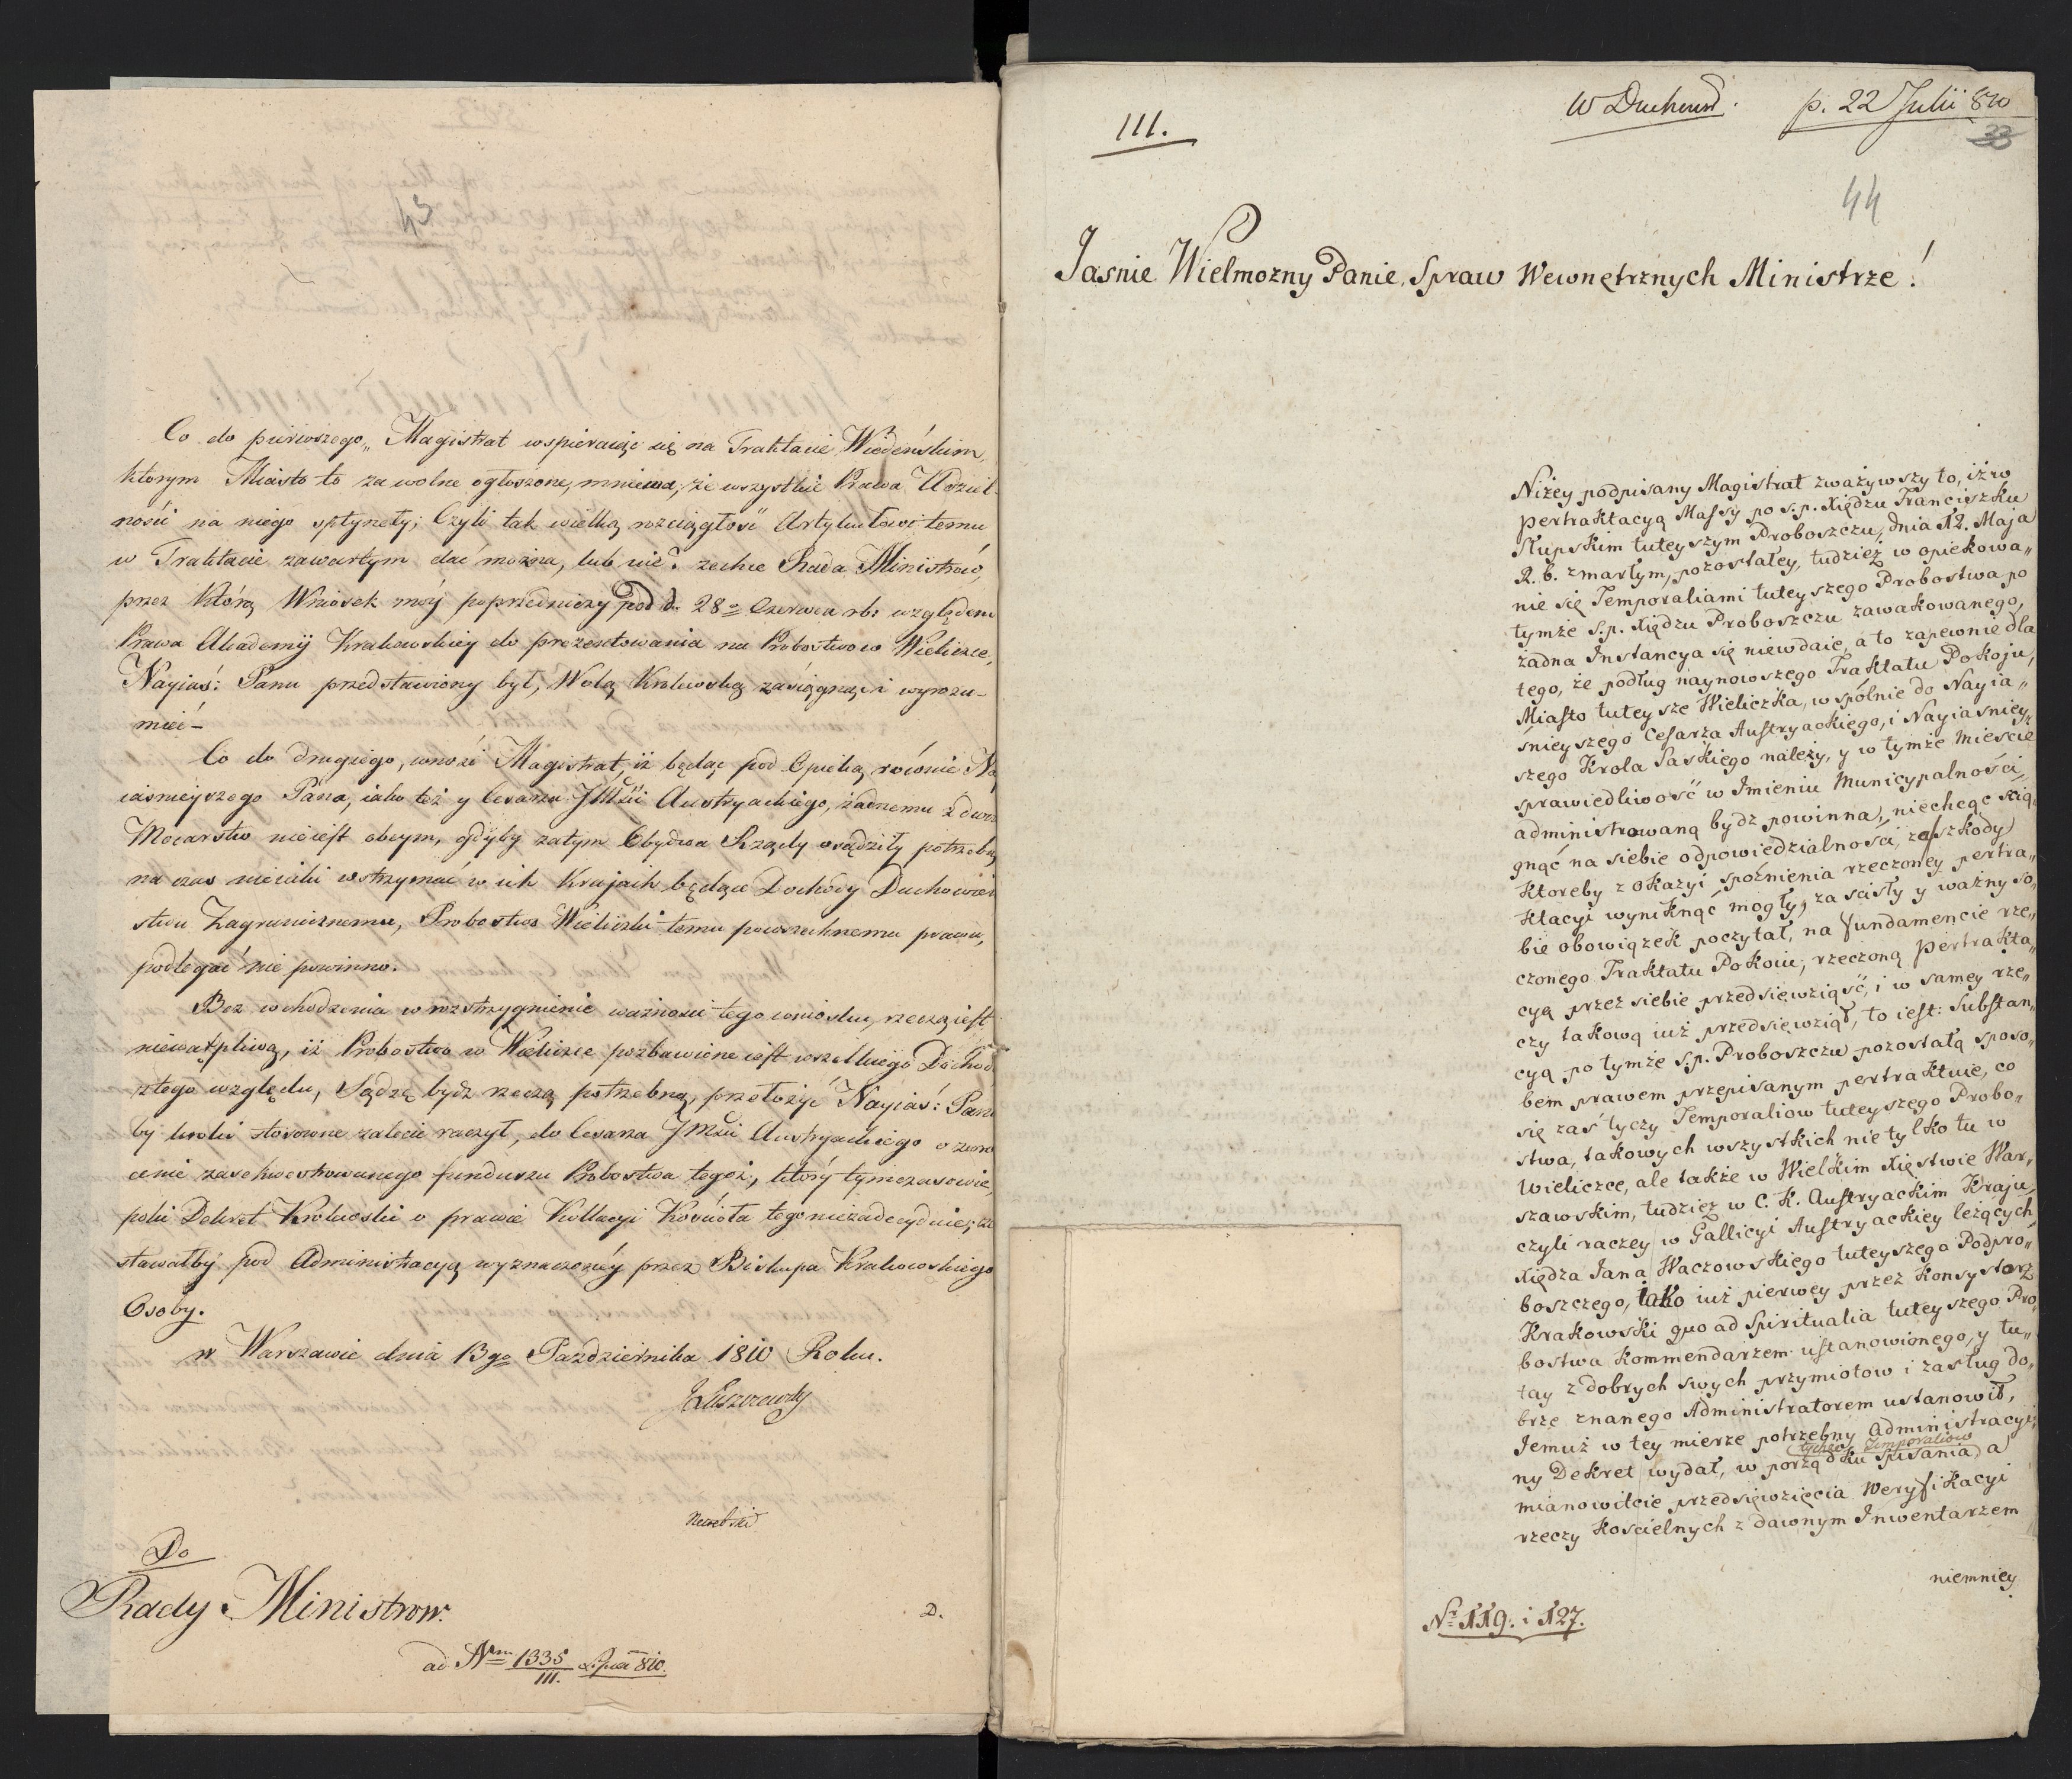 43
Co do pierwszego, Magistrat wspieraiąc się na Traktacie Wiedeńskim,
ktorym Miasto to za wolne ogłoszone, mniema, że wszystkie Prawa Udziel-
ności na niego spłynęły; Czyli tak wielką rozciągłość Artykułowi temu
w Traktacie zawartym dać można, lub nie? zechce Rada Ministrów,
przez którą Wniosek móy poprzedniczy pod d. 28º Czerwca rb: względem
Prawa Akademii Krakowskiey do prezentowania na Probostwo w Wieliczce,
Nayiaś: Panu przedstawiony był, Wolą Krolewską zasiągnąć i wyrozu-
mieć –
Co do drugiego, wnosi Magistrat, iż będąc pod Opieką rownie Na
iasnieyszego Pana, iako też y Cesarza JMści Austryackiego, żadnemu z dwoch
Mocarstw nieiest obcym, gdyby zatym Obydwa Rządy osądziły potrzebą
na czas nieiaki wstrzymać w ich Kraiach będące Dochody Duchowień
stwu Zagranicznemu, Probostwo Wielickie temu powszechnemu prawu,
podlegać nie powinno.
Bez wchodzenia w rozstrzygnienie ważności tego wniosku, rzeczą iest
niewątpliwą, iż Probostwo w Wieliczce pozbawione iest wszelkiego Dochod
z tego względu, Sądzę bydź rzeczą potrzebną, przełożyć Nayiaś: Panu
by kroki stosowne zalecić raczył, do Cesarza JMści Austryackiego o zwro
cenie zasekwestrowanego funduszu Probostwa tegoż, który tymczasowie,
poki Dekret Krolewski o prawie Kollacyi Kościoła tego niezadecyduie, zo
stawałby pod Administracyą wyznaczoney przez Biskupa Krakowskiego
Osoby.
w Warszawie dnia 13go Pazdziernika 1810 Roku.
JŁuszczewski
Do
Rady Ministrow.
D.
ad Nrm 1335/III. Lipca 810.
III.
W Duchown.
p. 22 Julii 810
33
44
Jasnie Wielmozny Panie, Spraw Wewnętrznych Ministrze!
Niżey podpisany Magistrat zważywszy to, iż w
pertraktacyą Massy po s.p. Xiędzu Franciszku
Słupskim tuteyszym Proboszczu, dnia 12. Maja
R. b. zmarłym, pozostałey, tudzież w opiekowa„
nie się Temporaliami tuteyszego Probostwa po
tymże s.p. Xiędzu Proboszczu zawakowanego,
żadna Instancya się niewdaie, a to zapewnie dla
tego, że podług naynowszego Traktatu Pokoju,
Miasto tuteysze Wieliczka, wspólnie do Nayia„
śnieyszego Cesarza Austryackiego, i Nayiasniey„
szego Krola Saskiego należy, y w tymże Mieście
sprawiedliwość w Imieniu Municypalności,
administrowaną bydz powinna, niechcąc ścią„
gnąć na siebie odpowiedzialności, za szkody
ktoreby z okazyi spoźnienia rzeczoney pertra„
ktacyi wyniknąć mogły, za scisły y ważny so„
bie obowiązek poczytał, na fundamencie rze„
czonego Traktatu Pokoiu, rzeczoną pertrakta„
cyą przez siebie przedsięwziąść, i w samey rze„
czy takową iuż przedsięwziął, to iest: Substan„
cyą po tymże s.p. Proboszczu pozostałą sposo„
bem prawem przepisanym pertraktuie, co
się zaś tyczy Temporaliow tuteyszego Probo„
stwa, takowych wszystkich nie tylko tu w
Wieliczce, ale także w Wielkim Xięstwie War„
szawskim, tudzież w C. K. Austryackim Kraju,
czyli raczey w Gallicyi Austryackiey leżących,
Xiędza Jana Waczowskiego tuteyszego Podpro„
boszczego, iako iuż pierwey przez Konsystorz
Krakowski quo ad Spiritualia tuteyszego Pro„
bostwa Kommendarzem ustanowionego, y tu„
tay z dobrych swych przymiotow i zasług do„
brze znanego Administratorem ustanowił,
Jemuż w tey mierze potrzebny Administracyi„
tychże Temporaliow
ny Dekret wydał, w porządku spisania, a
mianowicie przedsięwzięcia weryfikacyi
rzeczy Koscielnych z dawnym Inwentarzem
niemniey
Nr 119. i 127.